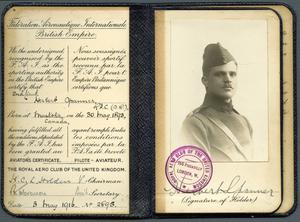 Fédération Aéronautique Internationale
British Empire
We the undersigned
recognised by the
F.A.I. as the
sporting authority
in the British
Empire certify
that
Nous soussignés
pouvoir sportif
reconnu par la
F.A.I. pour l'
Empire Britannique
certifions que
Herbert Spanner,
Born at
on the 30 May 1893,
Canada,
having fulfilled all
the conditions stipulated
by the F.A.I. has
been granted an
AVIATOR'S CERTIFICATE.
ayant rempli toutes
les conditions
imposées par la
F.A.I. a été breveté
PILOTE - AVIATEUR.
THE ROYAL AERO CLUB OF THE UNITED KINGDOM.
Chairman
Secretary
3 May 1916. No 2898.
ROYAL AERO CLUB OF THE UNITED
166 PICCADILLY
LONDON, W.
(Signature of Holder)